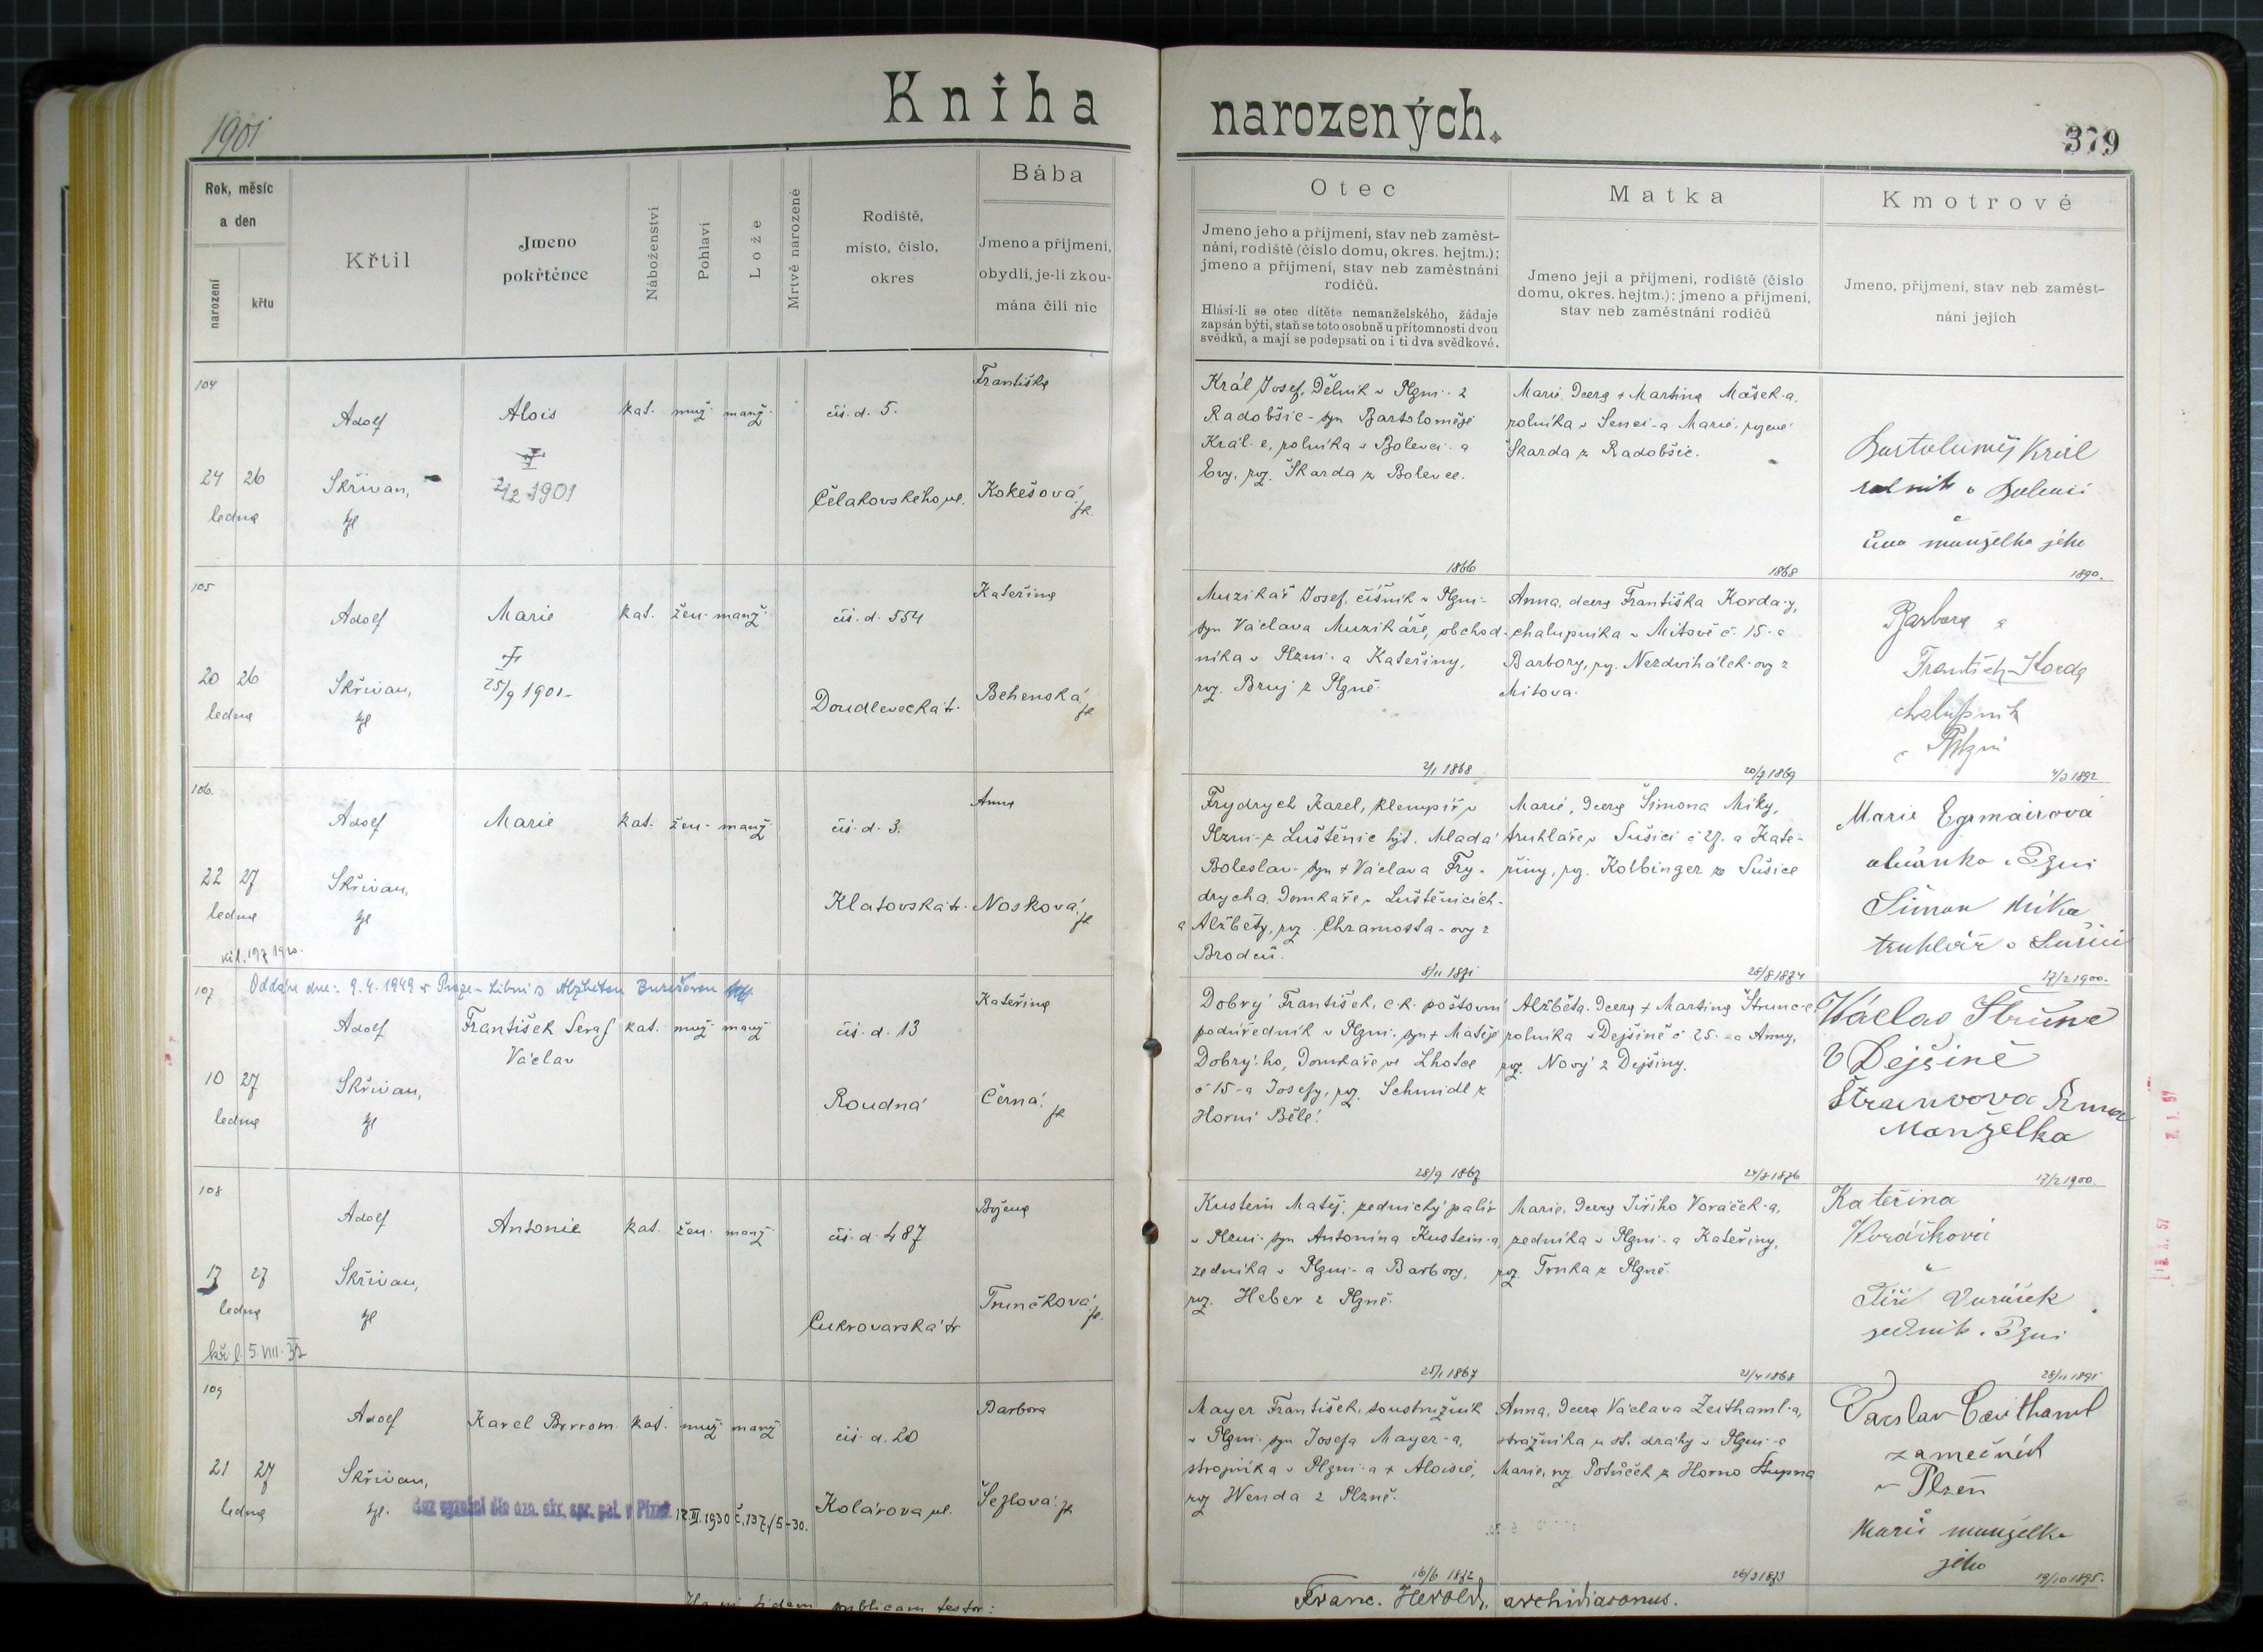 1901
Kniha narozených.
379
Rok, měsíc a den
narození
křtu
Křtil
Jmeno pokřtěnce
Náboženství
Pohlaví
Lože
Mrtvě narozené
Rodiště,
místo, číslo,
okres
Bába
Jmeno a příjmení,
obydlí, je-li zkou-
mána čili nic
Otec
Jmeno jeho a příjmení, stav neb zaměst-
nání, rodiště (číslo domu, okres. hejtm.);
jmeno a příjmení, stav neb zaměstnání
rodičů.
Hlásí-li se otec dítěte nemanželského, žádaje
zapsán býti, staň se toto osobně u přítomnosti dvou
svědků, a mají se podepsati on i ti dva svědkové.
Matka
Jmeno její a příjmení, rodiště (číslo
domu, okres. hejtm.); jmeno a příjmení,
stav neb zaměstnání rodičů
Kmotrové
Jmeno, příjmení, stav neb zaměst-
nání jejich
104
24 26
ledna
Adolf
Skřivan,
kpl
Alois
2/12 1901
kat. muž. manž.
čís. d. 5.
Čelakovského ul.
Františka
Kokešová,
zk.
Král Josef, Dělník v Plzni z
Radobšic - syn Bartoloměje
Král-e, rolníka v Bolevci a
Evy, roz. Škarda z Bolevce.
Marie, dcera + Martina Mašek-a,
rolníka v Senci a Marie, rozené
Škarda z Radobšic.
Bartoloměj Král
rolník v Bolevci
Eva manželka jeho
1866
1868
1890.
105
20 26
ledna
Adolf
Skřivan,
kpl
Marie
25/9 1901
kat. žen. manž.
čís. d. 554
Doudlevecká tř.
Kateřina
Behenská,
zk
Muzikář Josef, číšník v Plzni
syn Václava Muzikáře, obchod-
níka v Plzni a Kateřiny,
roz. Bruj z Plzně.
Anna, dcera Františka Korda-y,
chalupníka v Mitově č. 15 a
Barbory, roz. Nezdvihálek-ovy z
Mitova.
Barbora a
František Korda
chalupník
v Plzni
2/1 1868
20/7 1869
4/3 1892
106.
22 27
ledna
Adolf
Skřivan,
kpl
Marie
kat. žen. manž.
čís. d. 3.
Klatovská tř.
Anna
Nosková,
zk
Frydrych Karel, klempíř v
Plzni z Luštěnic hjt. Mladá
Boleslav - syn + Václava Fry-
drycha, Domkáře v Luštěnicích
a Alžběty, roz. Chramosta-ovy z
Brodců.
Marie, dcera Šimona Míky,
truhláře v Sušici č 27. a Kate-
řiny, roz. Kolbinger ze Sušice
Marie Egrmairová
v Plzni
Šimon Míka
truhlář v Sušici
8/11 1871
28/8 1874
17/2 1900.
107
Oddán dne: 9.4.1949 v Praze-Libni s Alžbětou Burešovou
10 27
ledna
Adolf
Skřivan,
kpl
František Seraf
Václav
kat. muž manž
čís. d. 13
Roudná
Kateřina
Černá,
zk
Dobrý František, c.k. poštovní
podúředník v Plzni, syn + Matěje
Dobrý-ho, Domkáře ve Lhotce
č 15 - a Josefy, roz. Schmidl z
Horní Bělé.
Alžběta, dcera + Martina Štrunc-e
rolníka v Dejšině č 25 - a Anny,
roz. Nový z Dejšiny.
Václav Štrunc
v Dejšině
Štruncova Anna
Manželka
28/9 1867
24/8 1876
17/2 1900.
108
17 27
ledna
kř. l. 5. VIII. 37
Adolf
Skřivan,
kpl
Antonie
kat. žen. manž.
čís. d. 487
Cukrovarská tř
Božena
Trunčková,
zk.
Kustein Matěj, zednický palír
v Plzni - syn Antonína Kustein-a,
zedníka v Plzni - a Barbory,
roz. Heber z Plzně.
Marie, dcera Jiřího Voráček-a,
zedníka v Plzni - a Kateřiny,
roz. Trnka z Plzně.
Kateřina
Voráčková
Jiří Voráček
zedník v Plzni
25/1 1867
21/4 1868
28/11 1891
109
21 27
ledna
Adolf
Skřivan,
kpl.
Karel Borrom.
kat. muž manž
čís. d. 20
Kolárova ul.
Barbora
Šezlová,
zk
17.III.1930 č. 137/5-30.
Mayer František, soustružník
v Plzni, syn Josefa Mayer-a,
strojníka v Plzni - a + Aloisie,
roz Wenda z Plzně.
Anna, dcera Václava Zeithaml-a,
strážníka u st. dráhy v Plzni - a
Marie, roz. Potůček z Horno Stupna
Václav Cajthaml
zámečník
v Plzni
Marie manželka
jeho
16/6 1872
26/3 1873
19/10 1895.
fidem publicam testor:
Franc. Herold, archidiaconus.